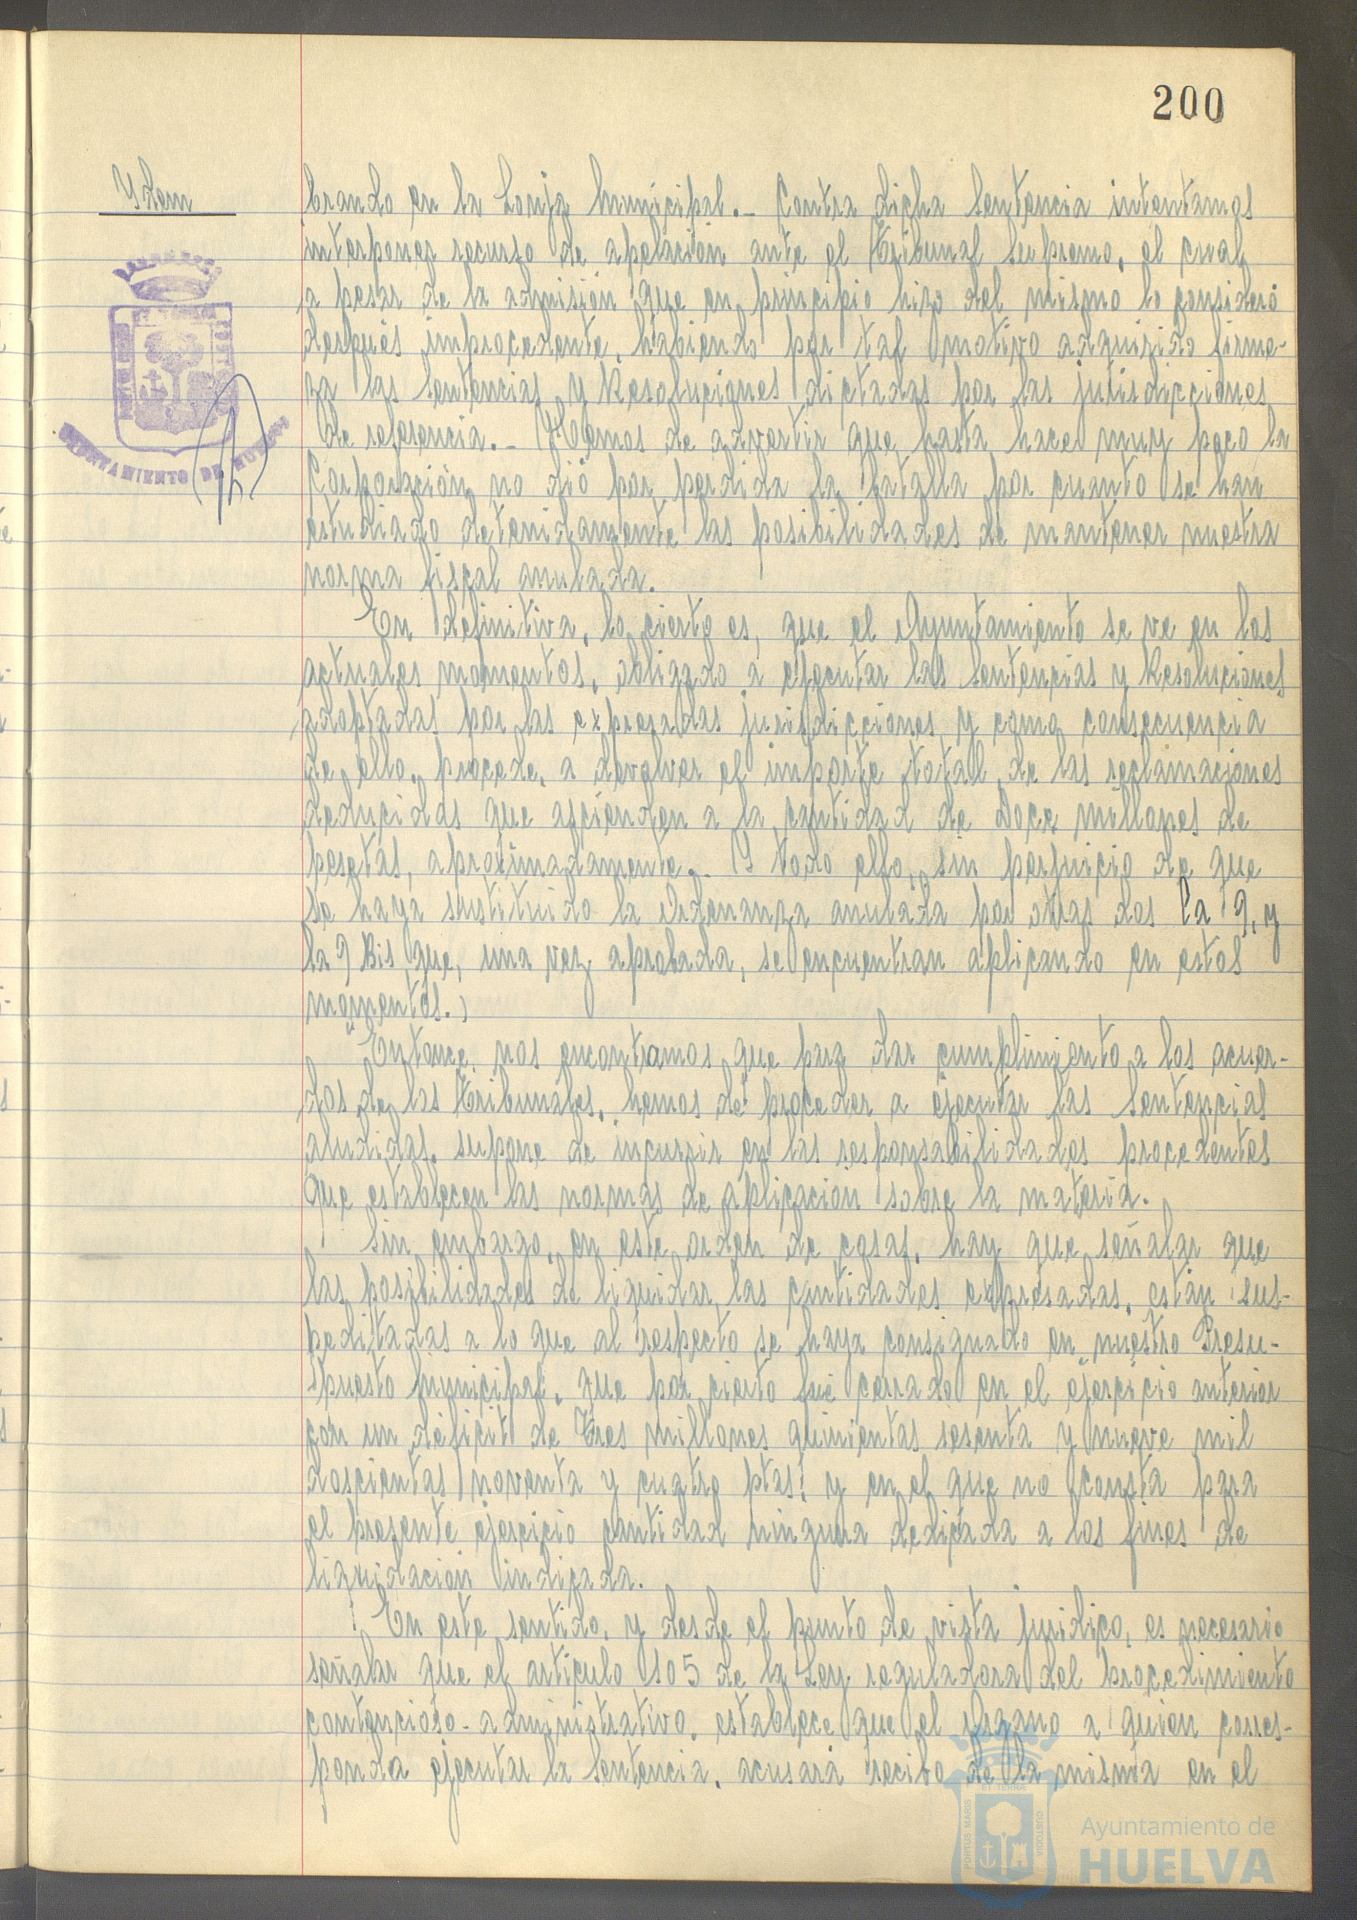 200
Ydem
brando en la Lonja Municipal.- Contra dicha Sentencia intentamos
interponer recurso de apelación ante el Tribunal Supremo, el cual
a pesar de la admisión que en principio hizo del mismo lo consideró
después improcedente, habiendo por tal motivo adquirido firme-
za las Sentencias y Resoluciones dictadas por las jurisdicciones
de referencia.- Hemos de advertir que hasta hace muy poco la
Corporación no dió por perdida la batalla por cuanto se han
estudiado detenidamente las posibilidades de mantener nuestra
norma fiscal anulada.
En definitiva, lo cierto es, que el Ayuntamiento se ve en los
actuales momentos, obligado a ejecutar las Sentencias y Resoluciones
adoptadas por las expresadas jurisdicciones, y como consecuencia
de ello, procede, a devolver el importe total de las reclamaciones
deducidas que ascienden a la cantidad de Doce millones de
pesetas, aproximadamente.- Y todo ello, sin perjuicio de que
se haya sustituido la Ordenanza anulada por otras dos la 9, y
la 9 Bis que, una vez aprobada, se encuentran aplicando en estos
momentos.)
Entonce, nos encontramos que para dar cumplimiento a los acuer-
dos de los Tribunales, hemos de proceder a ejecutar las Sentencias
aludidas, supone de incurrir en las responsabilidades procedentes
que establecen las normas de aplicación sobre la materia.
Sin embargo, en este orden de cosas, hay que señalar que
las posibilidades de liquidar las cantidades expresadas, están sus-
peditadas a lo que al respecto se haya consignado en nuestro Presu-
puesto Municipal, que por cierto fué cerrado en el ejercicio anterior
con un déficit de Tres millones quinientas sesenta y nueve mil
doscientas noventa y cuatro ptas. y en el que no consta para
el presente ejercicio cantidad ninguna dedicada a los fines de
liquidación indicada.
En este sentido, y desde el punto de vista jurídico, es necesario
señalar que el artículo 105 de la Ley reguladora del procedimiento
contencioso-administrativo, establece que el Organo a quien corres-
ponda ejecutar la Sentencia, acusará recibo de la misma en el
AYUNTAMIENTO DE HUELVA
PORTUS MARIS ET TERRAE CUSTODIA
Ayuntamiento de
HUELVA